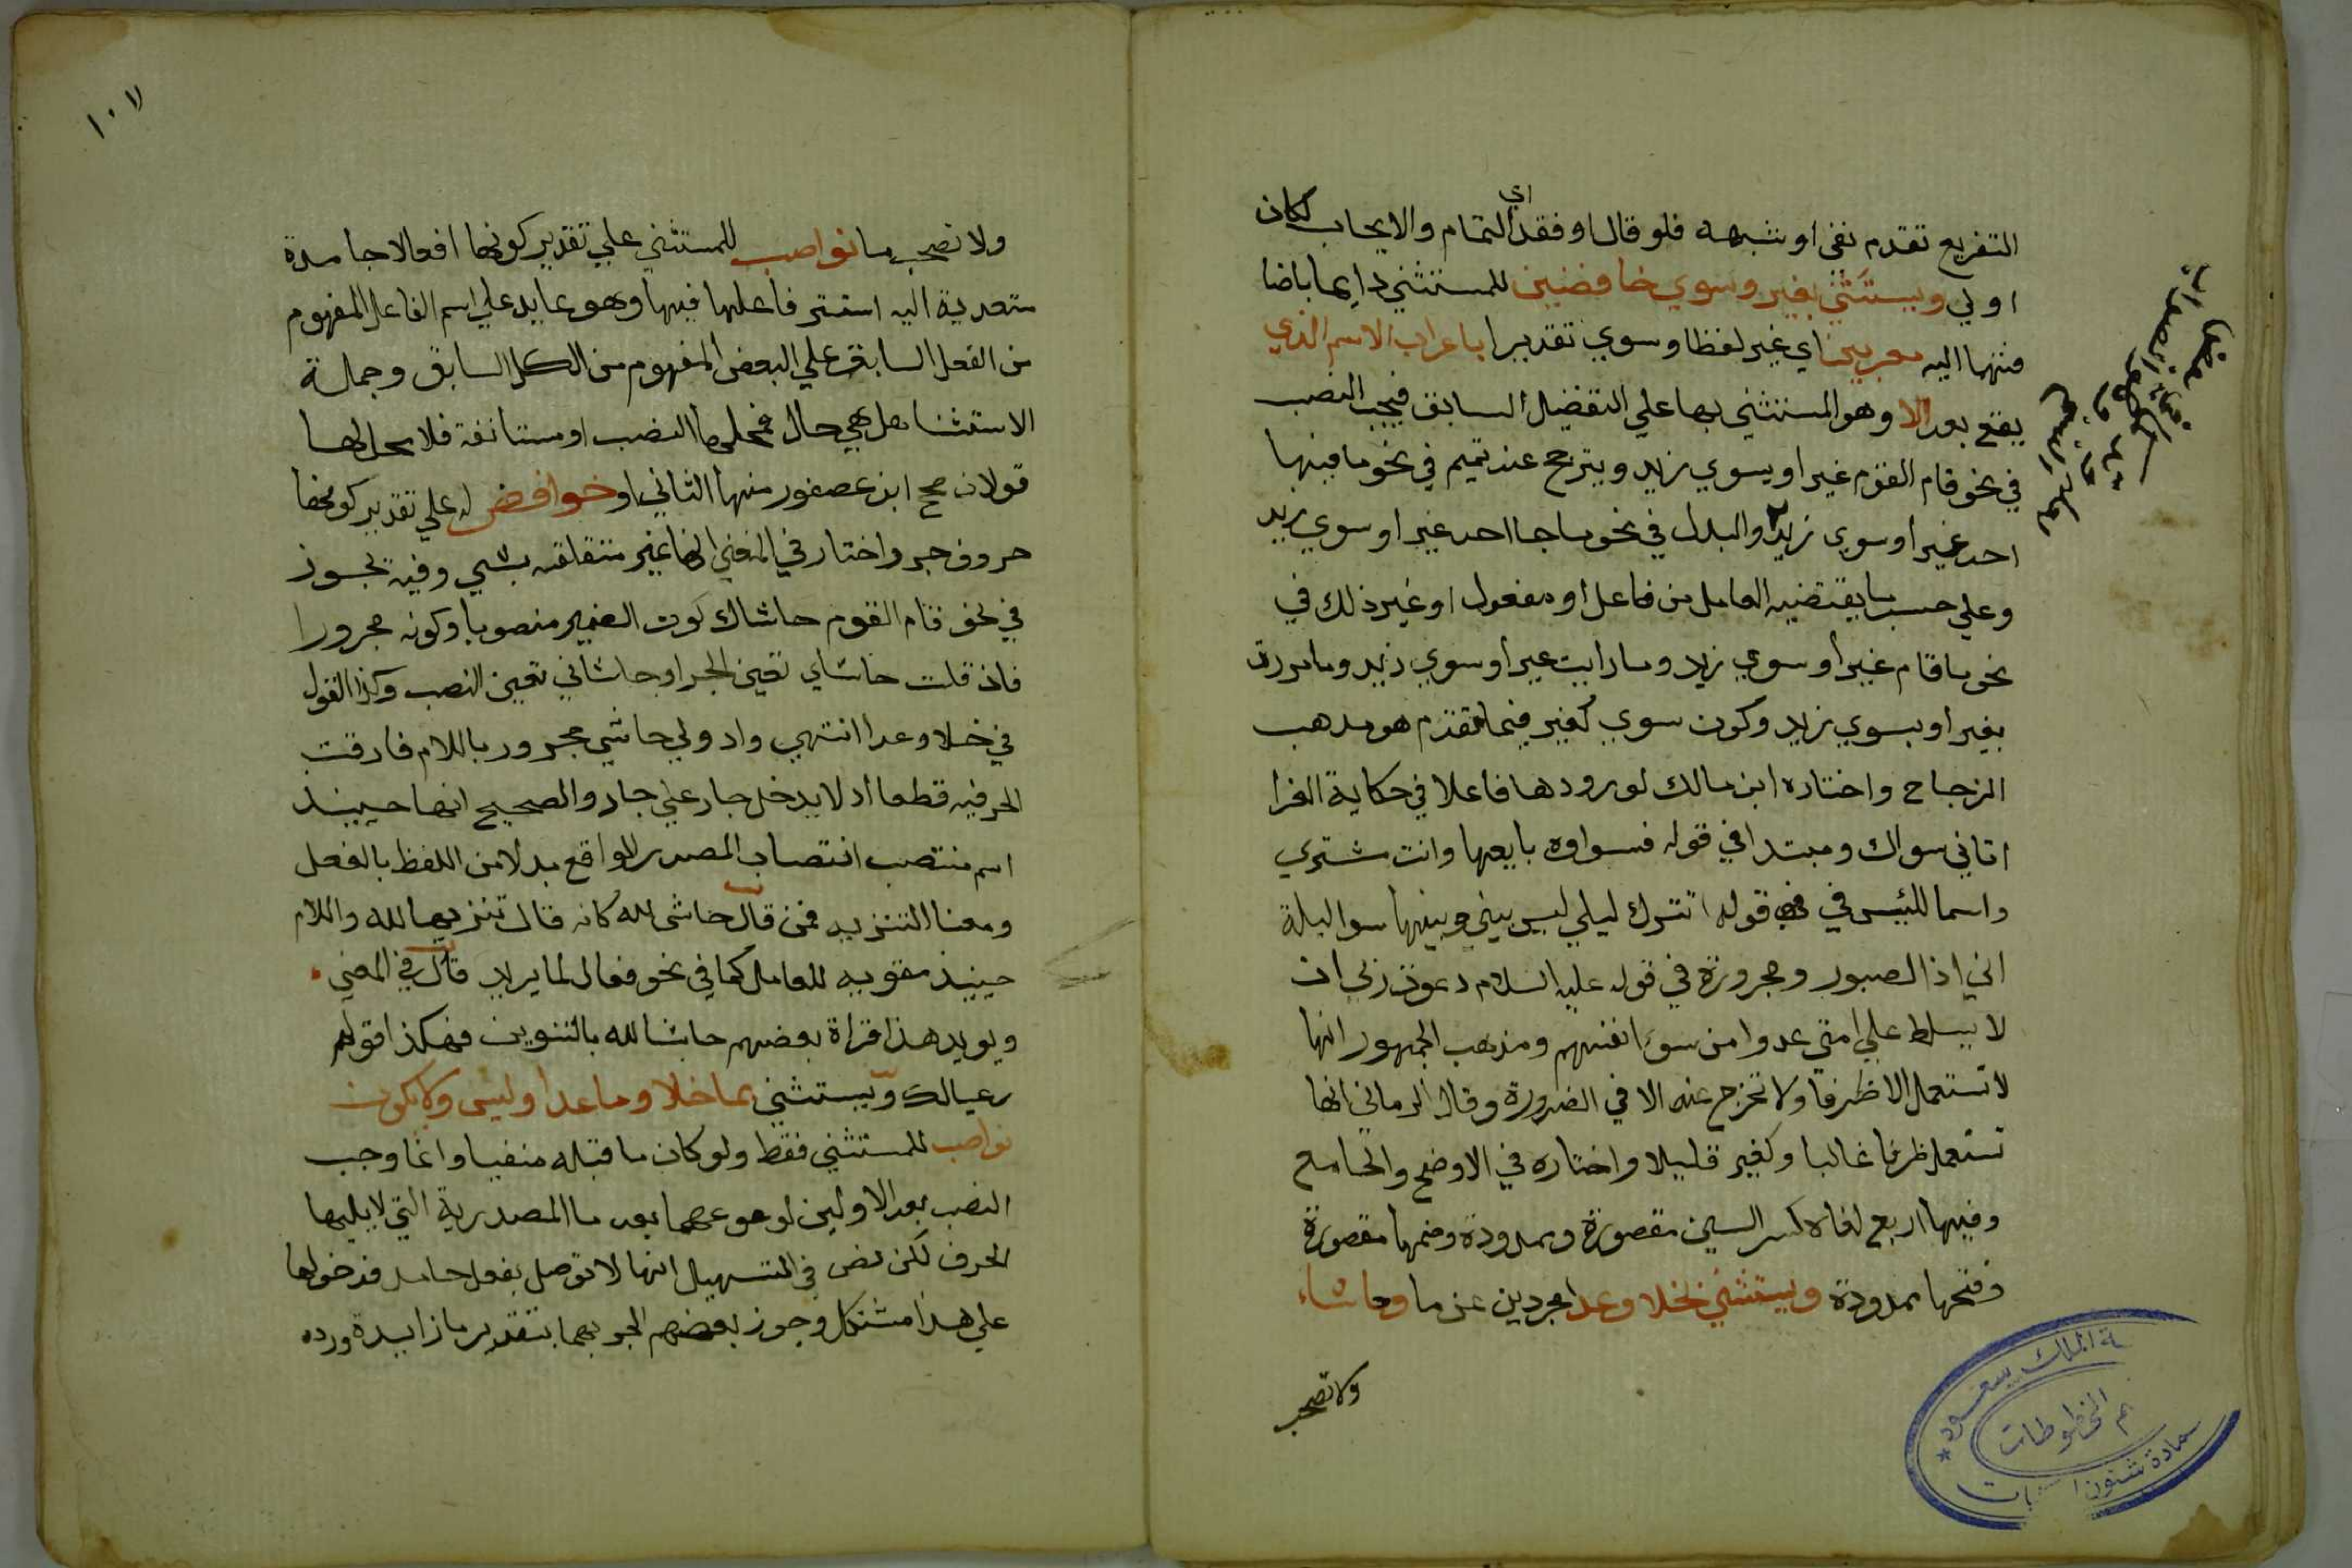 التفريع تقدم نفي او شبهه فلو قال او فقد اي التمام والايجاب لكان
اولي ويستثني بغير وسوي خافضين للمستثني دايما باضا
فتهما اليه معربين اي غير لفظا وسوي تقديرا باعراب الاسم الذي
يقع بعد الا وهو المستثني بها علي التفضيل السابق فيجب النصب
في نحو قام القوم غير او سوي زيد ويترجح عند تميم في نحو ما فيها
احد غير او سوي زيد والبدل في نحو ما جا احد غير او سوي زيد
وعلي حسب ما يقتضيه العامل من فاعل او مفعول او غير ذلك في
نحو ما قام غير او سوي زيد وما رايت غير او سوي زيد وما مررت
بغير او بسوي زيد وكون سوي كغير فيما تقدم هو مذهب
الزجاج واختاره ابن مالك لورودها فاعلا في حكاية الفرا
اتاني سواك ومبتدا في قوله فسواك بايعها وانت مشتري
واسما لليس في قوله اتترك ليلي ليس بيني وبينها سوا ليلة
اني اذا لصبور ومجرورة في قوله عليه السلام دعوت ربي ان
لا يسلط علي امتي عدوا من سوي انفسهم ومذهب الجمهور انها
لا تستعمل الا ظرفا ولا تخرج عنه الا في الضرورة وقال الرماني انها
تستعمل ظرفا غالبا وكغير قليلا واختاره في الاوضح والجامع
وفيها اربع لغات كسر السين مقصورة وممدودة وضمها مقصورة
وفتحها ممدودة ويستثني بخلا وعدا مجردين عن ما وحاشا
ولا تصحب
قسم المخطوطات
ولا تصحب ما نواصب للمستثني علي تقدير كونها افعالا جامدة
متعدية اليه استتر فاعلها فيها وهو عايد علي اسم الفاعل المفهوم
من الفعل السابق علي البعض المفهوم من الكل السابق وجملة
الاستثنا هل هي حال فمحلها النصب او مستانفة فلا محل لها
قولان صحح ابن عصفور منها الثاني او خوافض له علي تقدير كونها
حروف جر واختار في المغني انها غير متعلقه بشي وفيه تجوز
في نحو قام القوم حاشاك كون الضمير منصوبا وكونه مجرورا
فان قلت حاشاي تعين الجر او حاشاني تعين النصب وكذا القول
في خلا وعدا انتهي واذ ولي حاشي مجرور باللام فارقت
الحرفيه قطعا اذ لا يدخل جار علي جار والصحيح انها حينيذ
اسم منتصب انتصاب المصدر الواقع بدلا من اللفظ بالفعل
ومعنا التنزيه فمن قال حاشي لله كانه قال تنزيها لله واللام
حينيذ مقويه للعامل كما في نحو فعال لما يريد قال في المغني
ويويد هذا قراة بعضهم حاشا لله بالتنوين فهكذا قولهم
رعيا لك ويستثني بما خلا وما عدا وليس ولا يكون
نواصب للمستثني فقط ولو كان ما قبله منفيا وانما وجب
النصب بعد الاولين لوقوعهما بعد ما المصدرية التي لا يليها
الحرف لكن نص في التسهيل انها لا توصل بفعل جامد فدخولها
علي هذا مشكل وجوز بعضهم الجر بهما بتقدير ما زايدة ورده
١٠٧